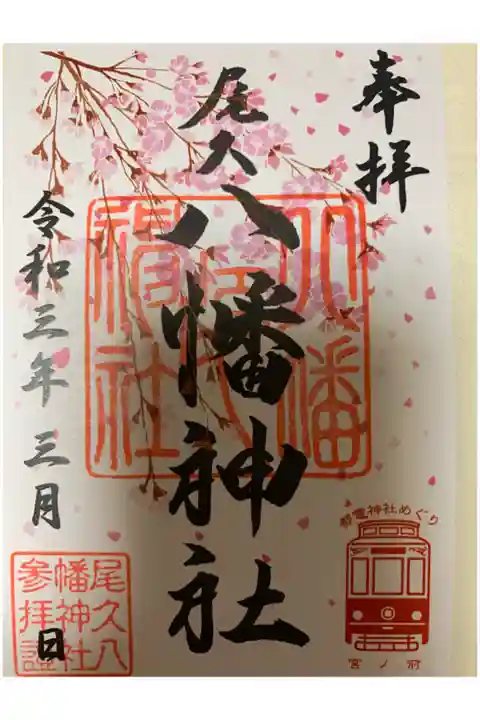 奉拝
尾久八幡神社
八幡
神社
都電神社めぐり
宮ノ前
令和三年 三月
日
尾久八
幡神社
参拝證